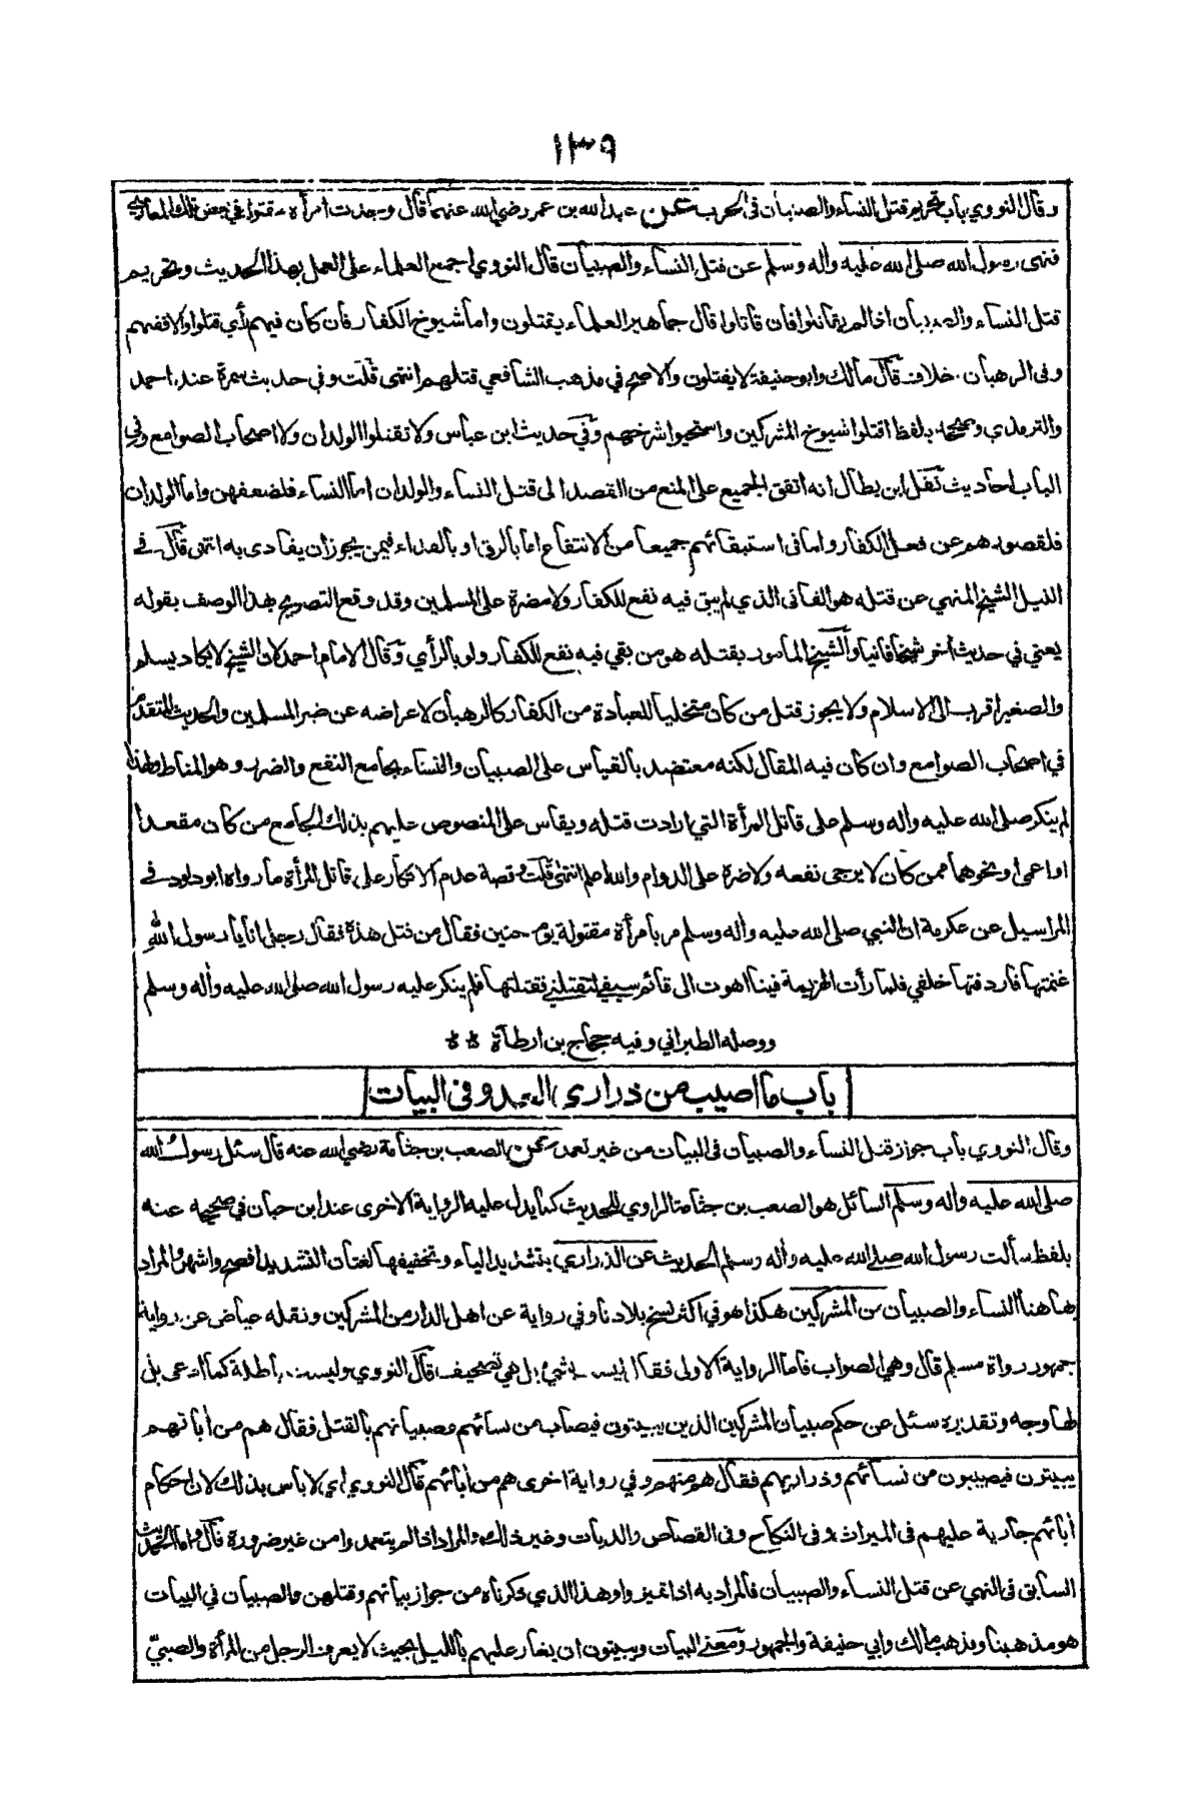 ١٣٩
وقال النووي باب تحريم قتل النساء والصبيان في الحرب عن عبد الله بن عمر رضي الله عنهما قال وجدت امرأة مقتولة في بعض تلك المغازي
فنهى رسول الله صلى الله عليه وأله وسلم عن قتل النساء والصبيان قال النووي اجمع العلماء على العمل بهذا الحديث وتحريم
قتل النساء والصبيان اذا لم يقاتلوا فان قاتلوا قال جماهير العلماء يقتلون واما شيوخ الكفار فان كان فيهم رأي قتلوا والا ففيهم
وفى الرهبان خلاف قال مالك وابو حنيفة لا يقتلون والاصح في مذهب الشافعي قتلهم انتهى قلت وفي حديث سمرة عند احمد
والترمذي وصححه بلفظ اقتلوا شيوخ المشركين واستحيوا شرخهم وفي حديث ابن عباس ولا تقتلوا الولدان ولا اصحاب الصوامع وفي
الباب احاديث نقل ابن بطال انه اتفق الجميع على المنع من القصد الى قتل النساء والولدان اما النساء فلضعفهن واما الولدان
فلقصورهم عن فعل الكفار واما فى استبقائهم جميعا من الانتفاع اما بالرق او بالفداء فيمن يجوز ان يفادى به انتهى قال في
النيل الشيخ المنهي عن قتله هو الفانى الذي لم يبق فيه نفع للكفار ولا مضرة على المسلمين وقد وقع التصريح بهذا الوصف بقوله
يعني في حديث أخر شيخا فانيا والشيخ المأمور بقتله هو من بقي فيه نفع للكفار ولو بالرأي وقال الامام احمد لان الشيخ لا يكاد يسلم
والصغير اقرب الى الاسلام ولا يجوز قتل من كان متخليا للعبادة من الكفار كالرهبان لاعراضه عن ضر المسلمين والحديث المتقدم
في اصحاب الصوامع وان كان فيه المقال لكنه معتضد بالقياس على الصبيان والنساء بجامع النفع والضرر وهو المناط ولهذا
لم ينكر صلى الله عليه وأله وسلم على قاتل المرأة التي ارادت قتله ويقاس على المنصوص عليهم بذلك الجامع من كان مقعدا
او اعمى او نحوهما ممن كان لا يرجى نفعه ولا ضره على الدوام والله اعلم انتهى قلت وقصة عدم الانكار على قاتل المرأة ما رواه ابو داود في
المراسيل عن عكرمة ان النبي صلى الله عليه وأله وسلم مر بامرأة مقتولة يوم حنين فقال من قتل هذه فقال رجل انا يا رسول الله
غنمتها فاردفتها خلفي فلما رأت الهزيمة فينا اهوت الى قائم سيفي لتقتلني فقتلتها فلم ينكر عليه رسول الله صلى الله عليه وأله وسلم
ووصله الطبراني وفيه حجاج بن ارطاة
باب ما اصيب من ذراري العدو فى البيات
وقال النووي باب جواز قتل النساء والصبيان فى البيات من غير تعمد عن الصعب بن جثامة رضي الله عنه قال سئل رسول الله
صلى الله عليه وأله وسلم السائل هو الصعب بن جثامة الراوي للحديث كما يدل عليه الرواية الاخرى عند ابن حبان في صحيحه عنه
بلفظ سألت رسول الله صلى الله عليه وأله وسلم الحديث عن الذراري بتشديد الياء وتخفيفها لغتان التشديد افصح واشهر والمراد
ها هنا النساء والصبيان من المشركين هكذا هو في اكثر نسخ بلادنا وفي رواية عن اهل الدار من المشركين ونقله عياض عن رواية
جمهور رواة مسلم قال وهي الصواب فاما الرواية الاولى فقال ليس بشيء بل هي تصحيف قال النووي وليست باطلة كما ادعى بل
لها وجه وتقديره سئل عن حكم صبيان المشركين الذين يبيتون فيصاب من نسائهم وصبيانهم بالقتل فقال هم من أبائهم
يبيتون فيصيبون من نسائهم وذراريهم فقال هم منهم وفي رواية اخرى هم من أبائهم قال النووي اي لا باس بذلك لان احكام
أبائهم جارية عليهم فى الميراث وفى النكاح وفى القصاص والديات وغير ذلك والمراد اذا لم يتعمدوا من غير ضرورة قال واما الحديث
السابق فى النهي عن قتل النساء والصبيان فالمراد به اذا تميزوا وهذا الذي ذكرناه من جواز بياتهم وقتلهن والصبيان في البيات
هو مذهبنا ومذهب مالك وابي حنيفة والجمهور ومعنى البيات ويبيتون ان يغار عليهم بالليل بحيث لا يعرف الرجل من المرأة والصبيّ